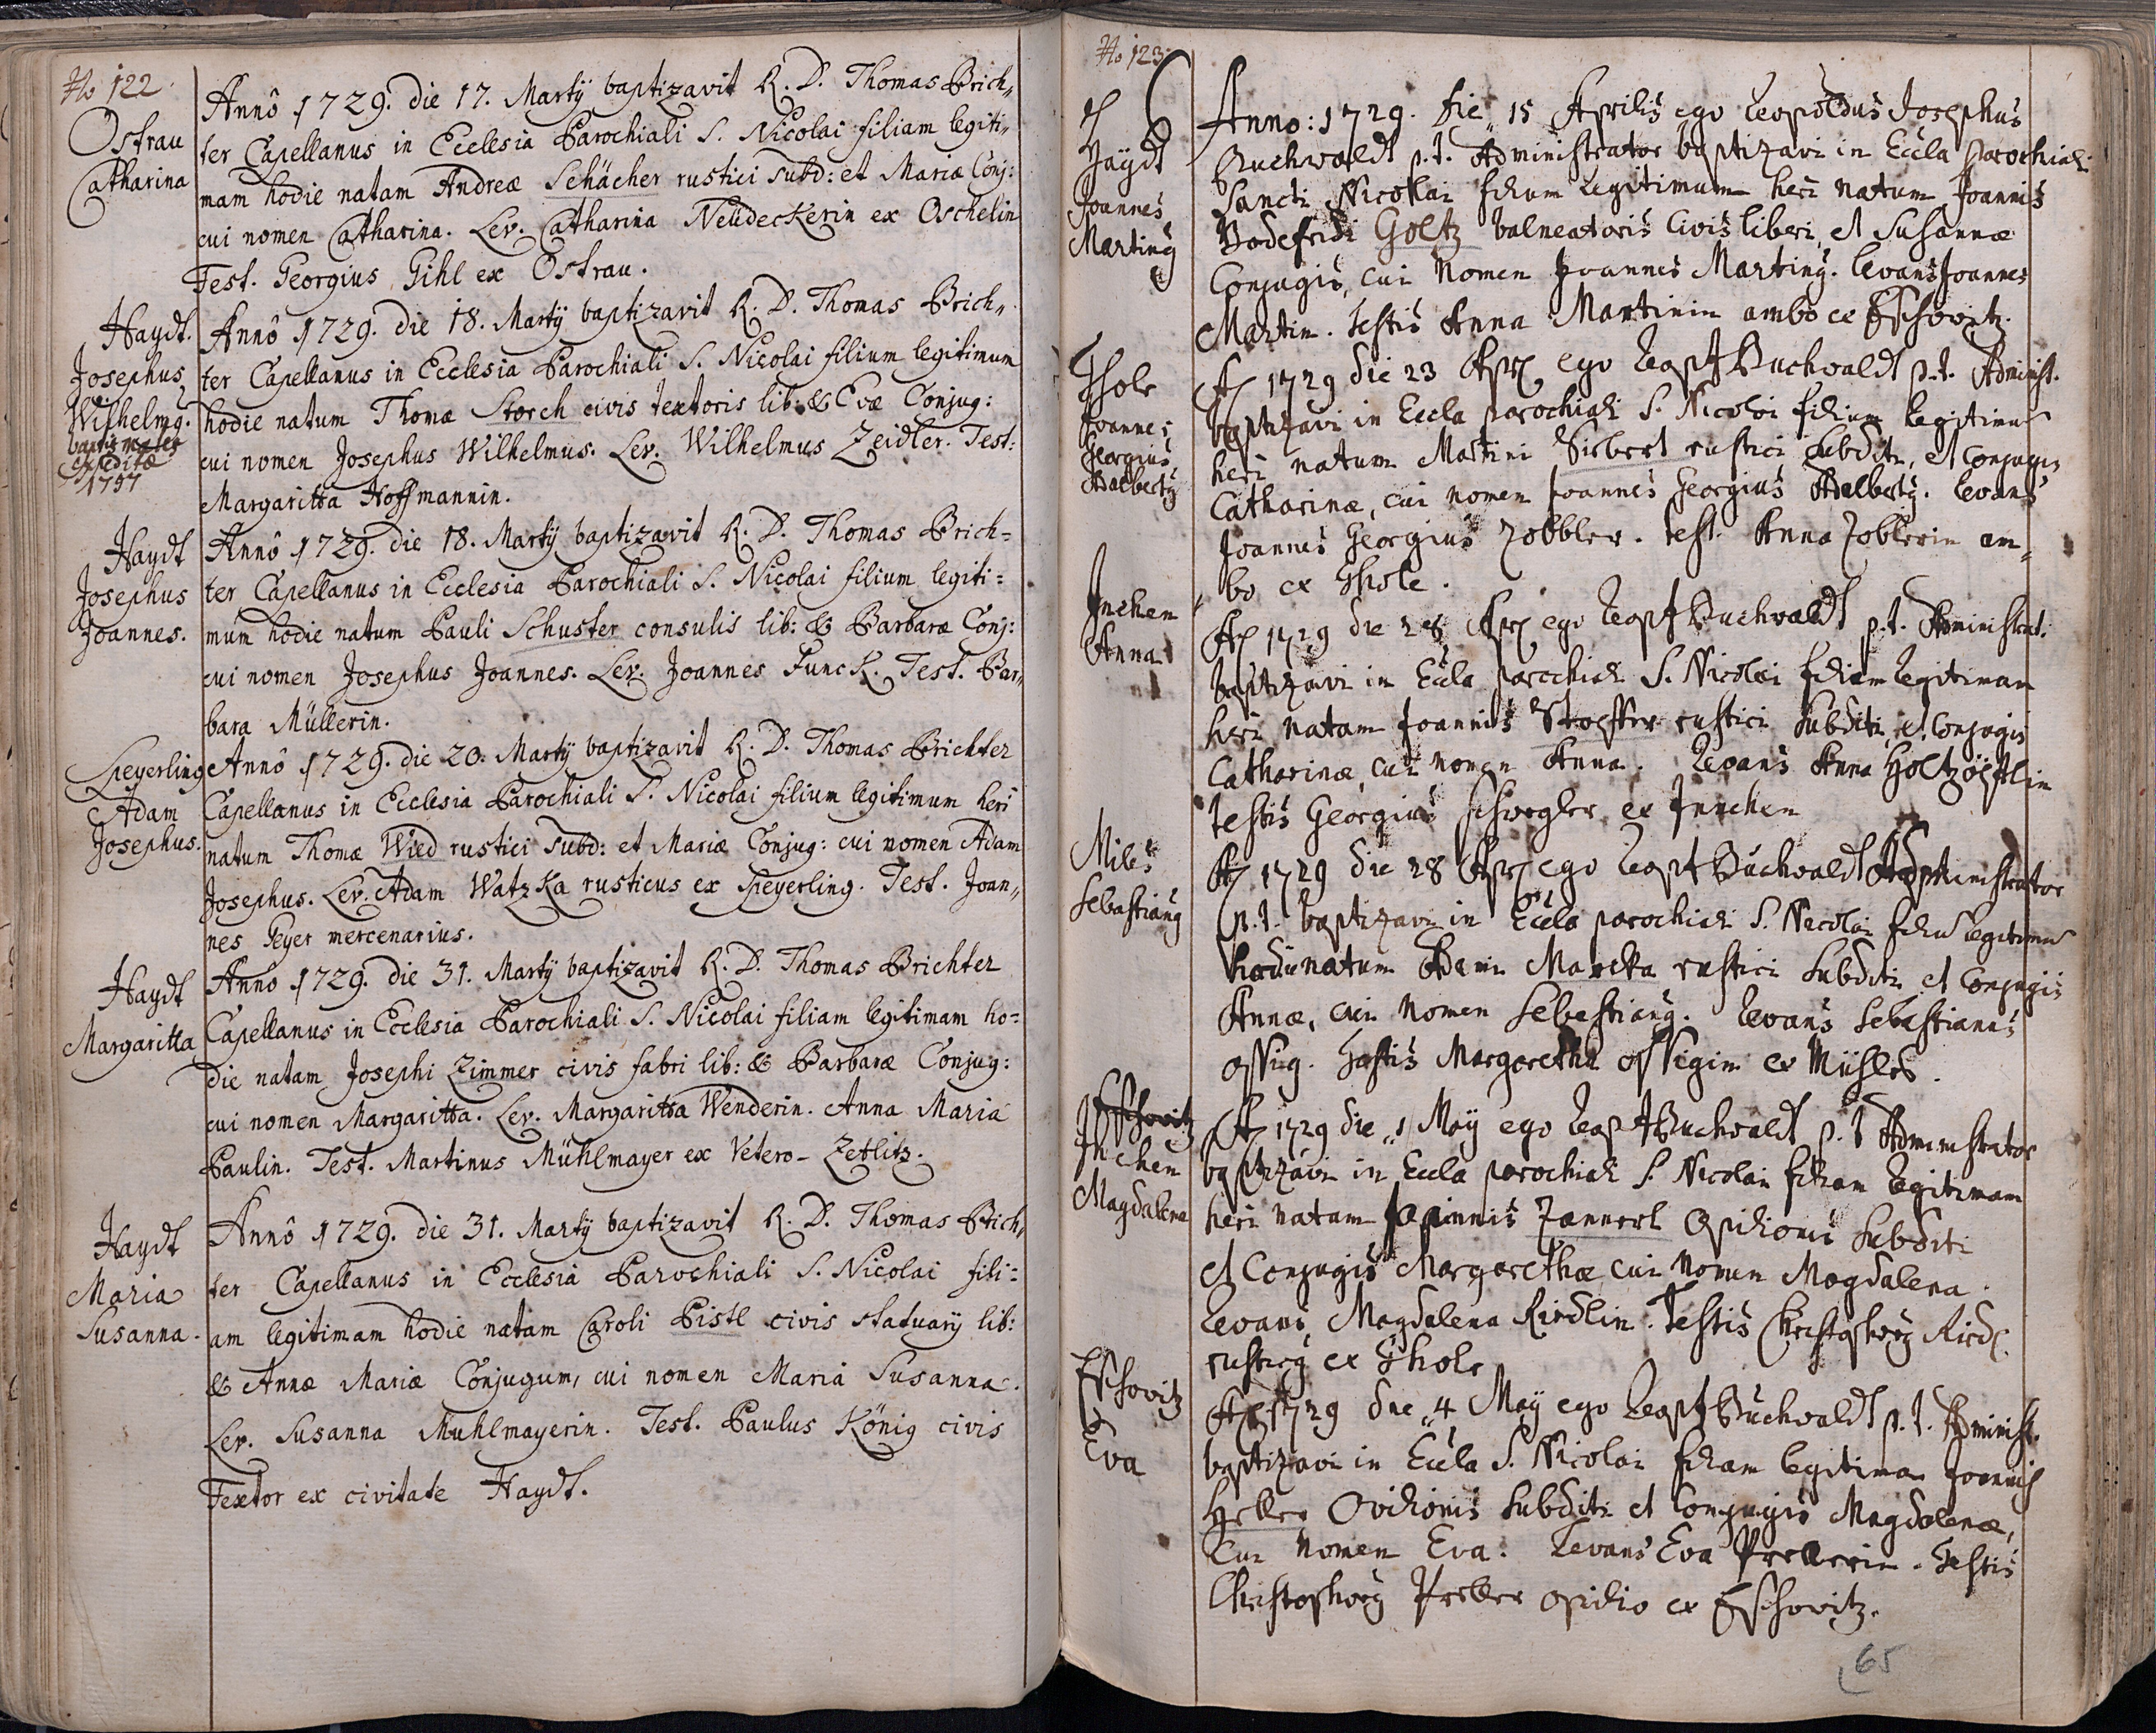 No 122.
Ostrau
Catharina
Annô 1729. die 17. Martÿ baptizavit R. D. Thomas Brich„
ter Capellanus in Ecclesia Parochiali S. Nicolai filiam legiti„
mam hodie natam Andreæ Schächer rustici subd: et Mariæ Conj:
cui nomen Catharina. Lev. Catharina Neüdeckerin ex Oschelin
Test. Georgius Gihl ex Ostrau.
Haydt.
Josephus
Wilhelmg.
expedita
1757
Annô 1729. die 18. Martÿ baptizavit R. D. Thomas Brich„
ter Capellanus in Ecclesia Parochiali S. Nicolai filium legitimum
hodie natum Thomæ Storch civis textoris lib: & Evæ Conjug:
cui nomen Josephus Wilhelmus. Lev. Wilhelmus Zeidler. Test:
Margaritta Hoffmannin.
Haydt
Josephus
Joannes.
Annô 1729. die 18. Martÿ baptizavit R. D. Thomas Brich=
ter Capellanus in Ecclesia Parochiali S. Nicolai filium legiti=
mum hodie natum Pauli Schuster consulis lib: & Barbaræ Conj:
cui nomen Josephus Joannes. Lev. Joannes Funck. Test. Bar„
bara Müllerin.
Speyerling
Adam
Josephus.
Annô 1729. die 20. Martÿ baptizavit R. D. Thomas Brichter
Capellanus in Ecclesia Parochiali S. Nicolai filium legitimum heri
natum Thomæ Wied rustici subd: et Mariæ Conjug: cui nomen Adam
Josephus. Lev. Adam Watzka rusticus ex Speyerling. Test. Joan„
nes Geyer mercenarius.
Haydt
Margaritta
Annô 1729. die 31. Martÿ baptizavit R. D. Thomas Brichter
Capellanus in Ecclesia Parochiali S. Nicolai filiam legitimam ho=
die natam Josephi Zimmer civis fabri lib: & Barbaræ Conjug:
cui nomen Margaritta. Lev. Margaritta Wenderin. Anna Maria
Paulin. Test. Martinus Mühlmayer ex Vetero-Zetlitz.
Haydt
Maria
Susanna.
Annô 1729. die 31. Martÿ baptizavit R. D. Thomas Brich„
ter Capellanus in Ecclesia Parochiali S. Nicolai fili=
am legitimam hodie natam Caroli Pistl civis statuarÿ lib:
& Annæ Mariæ Conjugum, cui nomen Maria Susanna.
Lev. Susanna Muhlmayerin. Test. Paulus König civis
Textor ex civitate Haydt.
No 123.
Haydt
Joannes
Marting
Anno: 1729. die 15 Aprilis ego Leopoldus Josephus
Buchwaldt p.t. Administrator baptizavi in Eccla parochiali
Sancti Nicolai filium legitimum heri natum Joannis
Godefridi Goltz balneatoris Civis liberi, et Susannæ
Conjugis, cui Nomen Joannes Marting. Levans Joannes
Martin. testis Anna Martinin ambo ex Eschowitz.
Ghole
Joannes
Georgius
Adalbertg
A 1729 die 23 Apr ego Leop Buchwaldt p.t. Administ.
baptizavi in Eccla parochiali S. Nicolai filium legitimu
heri natum Martini Siebert rustici subditi, et Conjugis
Catharinæ, cui nomen Joannes Georgius Adelbertg. levans
Joannes Georgius Zobbler. test. Anna Zoblerin am„
bo ex Ghole.
Inchen
Anna
A 1729 die 28 Apr ego Leop Buchwaldt p.t. Administrat.
baptizavi in Eccla parochiali S. Nicolai filiam legitimam
heri natam Joannis Stoeffer rustici subditi, et Conjugis
Catharinæ, cui nomen Anna. Levans Anna
testis Georgius Schwegler ex Innchen
Miles
Sebastiang
A 1729 die 28 Apr ego Leop Buchwaldt Administrator
p.t. baptizavi in Eccla parochiali S. Nicolai filiu legitimu
hodie natum Adami Mareka rustici subditi et Conjugis
Annæ, cui Nomen Sebastiang. Levans Sebastianus
Ossig. testis Margaretha Ossegin ex Mühles.
Eschowitz
Inchen
Magdalena
A 1729 die 1 Maÿ ego Leop Buchwaldt p.t Administrator
baptizavi in Eccla parochiali S. Nicolai filiam legitimam
heri natam Joannis Zannerl Opilionis subditi
et Conjugis Margarethæ cui Nomen Magdalena.
Levans Magdalena Riedlin. testis Christophorg Riedl
rusticg ex Ghole
Eschowitz
Eva
A 1729 die 4 Maÿ ego Leop Buchwaldt p.t. Administ.
baptizavi in Eccla S. Nicolai filiam legitimam Joannis
Heller Ovilionis subditi et Conjugis Magdalenæ,
Cui Nomen Eva. Levans Eva Prellerin. testis
Christophorg Preller opilio ex Eschowitz.
65